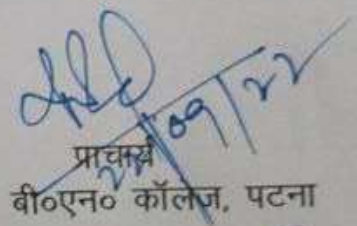 09/22
प्राचार्य
बी०एन० कॉलेज, पटना